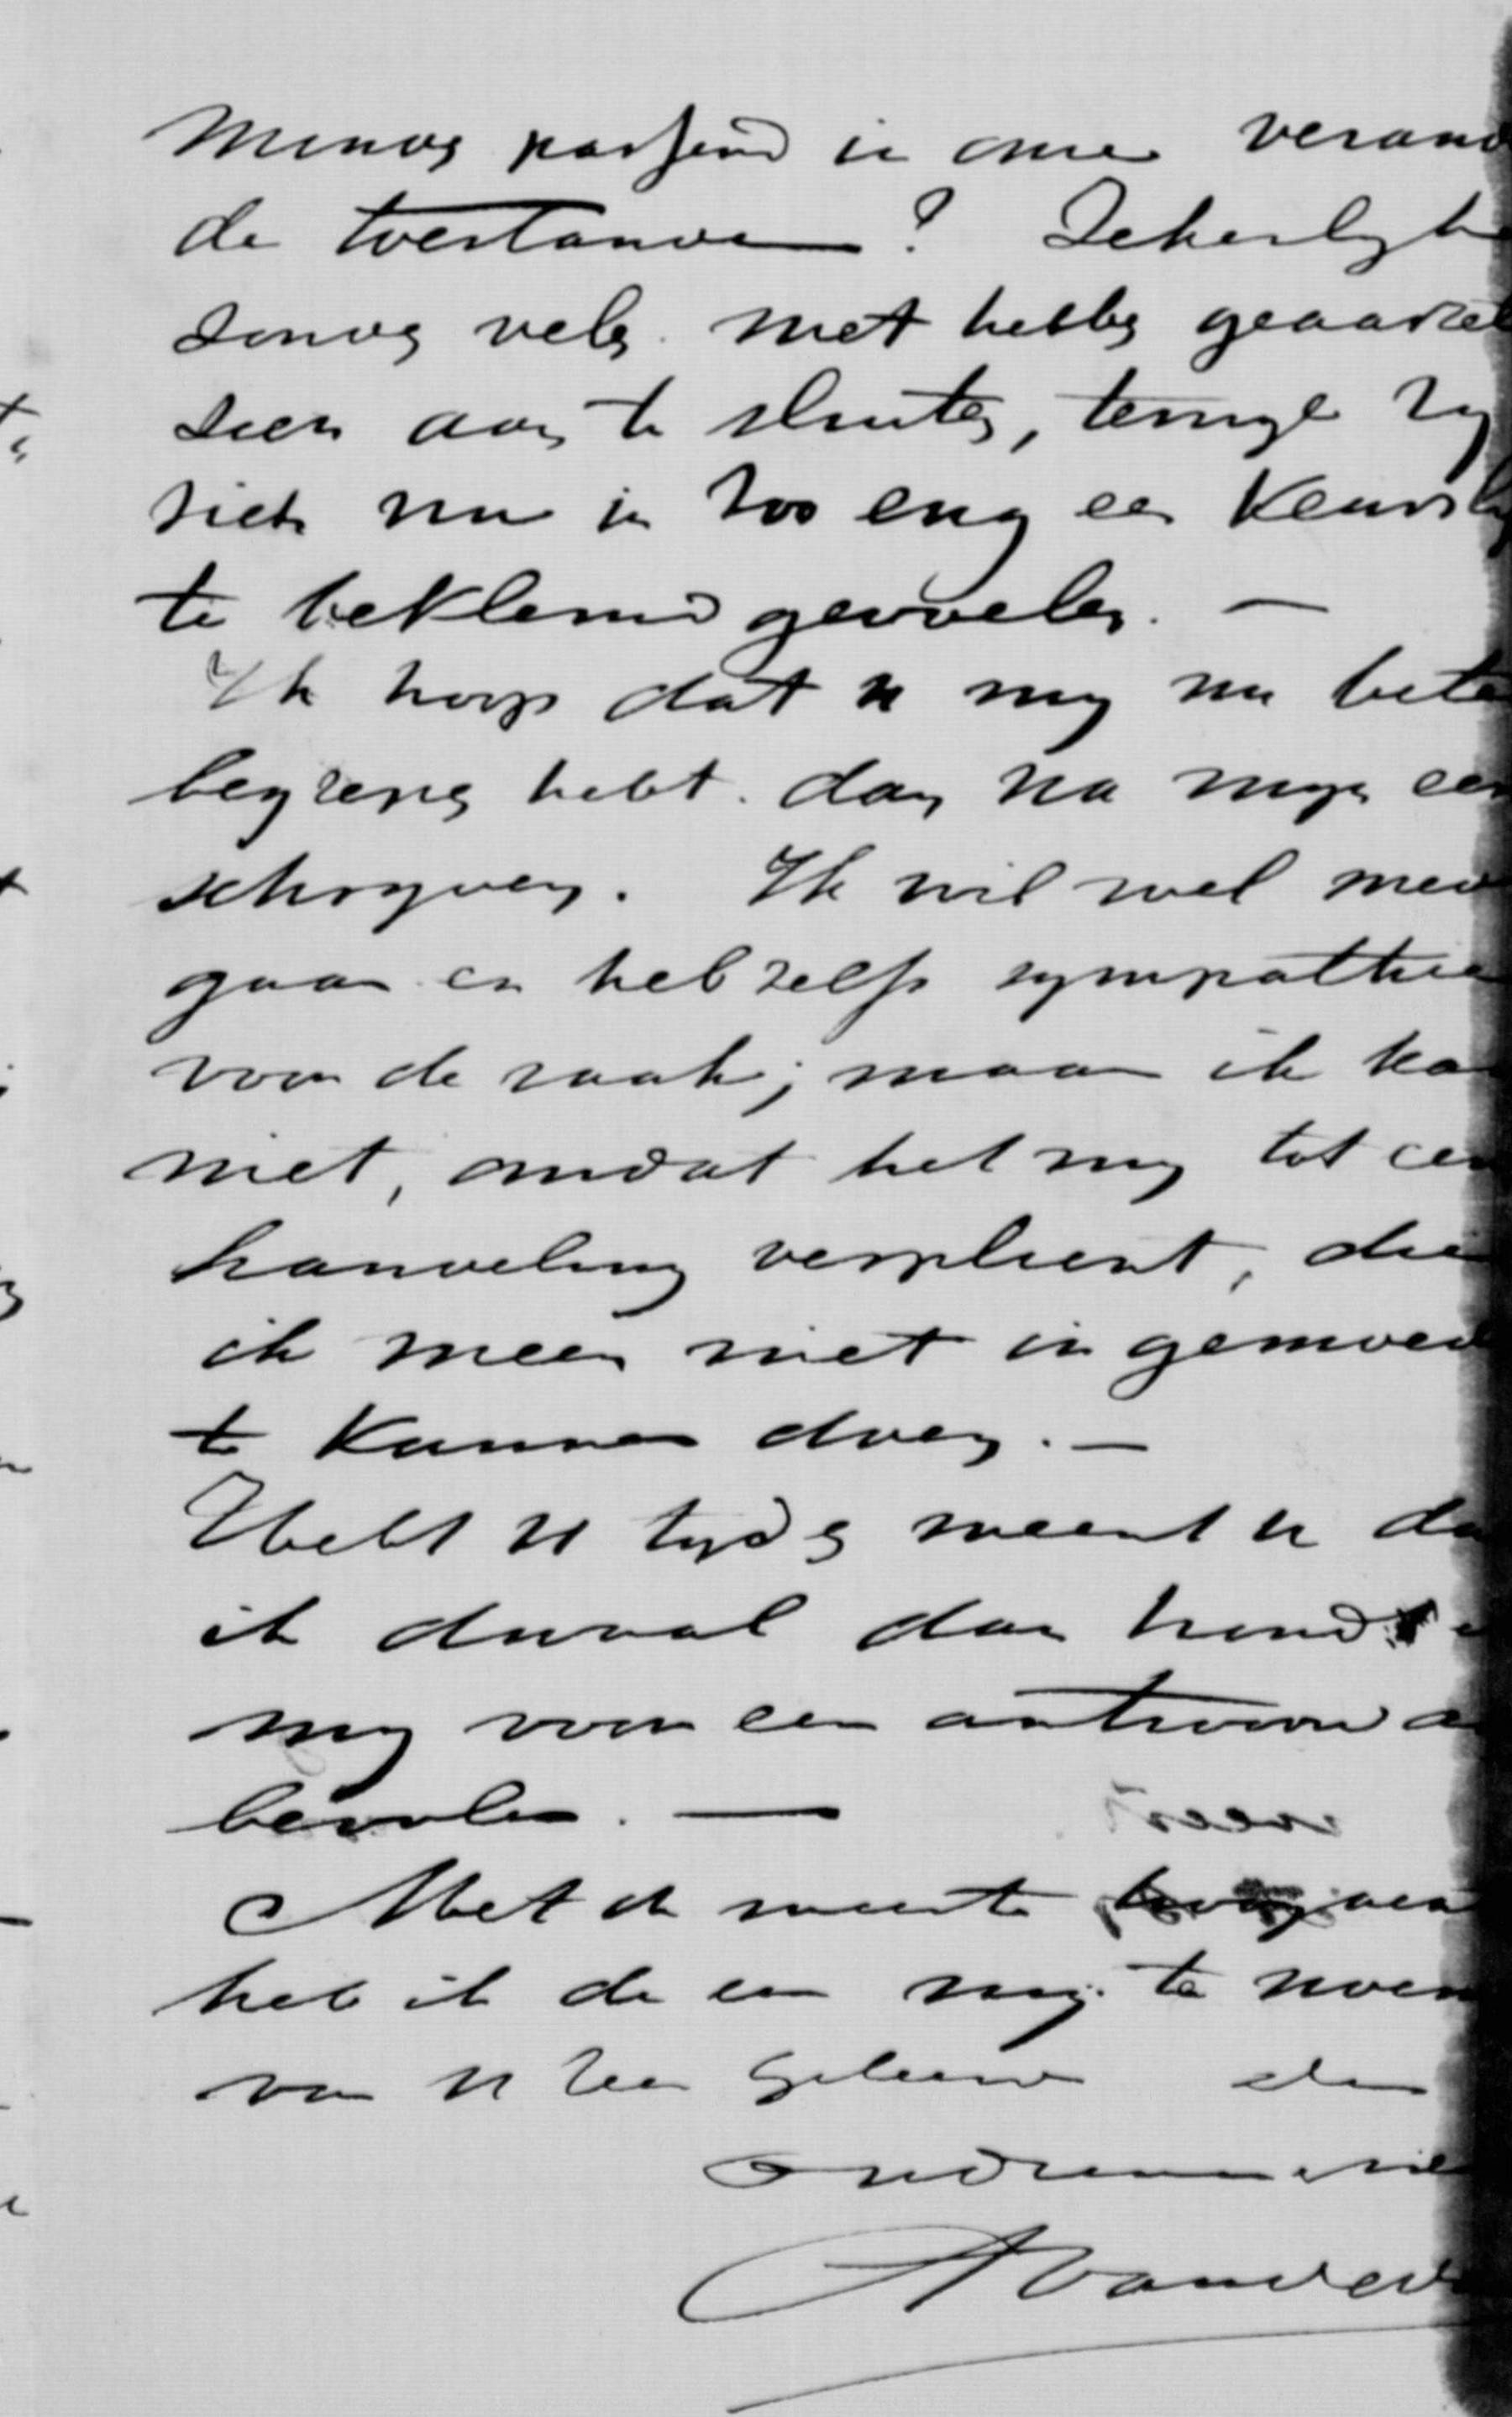 minder passend in onze verand
de toestanden ? Zekerlyk
zouden velen niet hebben geaarzel
zich aan te sluiten, terwyl zy
zich nu in zoo eng een keursly
te bekleind gevoelen. —
Ik hoop dat u my nu bete
begrepen hebt dan na myn eer
schryven. Ik wil wel mede
gaan en heb zelfs sympathie
voor de zaak; maar ik ka
niet, omdat het my tot een
handeling verplicht, die
ik meen niet in gemoed
te kunnen doen. —
Hebt u tyd en meent u da
ik dwaal dan houd
my voor een antwoord a
bevolen. —
Met de meeste
heb ik de eer my te noem
van u zeer geleerde